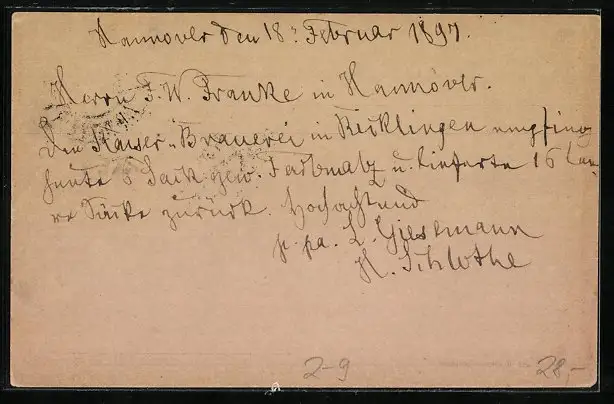 Hannover den 18. Februar 1897.
Herrn F. W. Franke in Hannover.
Die Kaiser-Brauerei in Ricklingen empfing
heute 6 Sack gew. Farbmalz u. lieferte 16 lee-
re Säcke zurück. Hochachtend
p. pa. L. Gieselmann
H. Schlothe
2-9
28,-